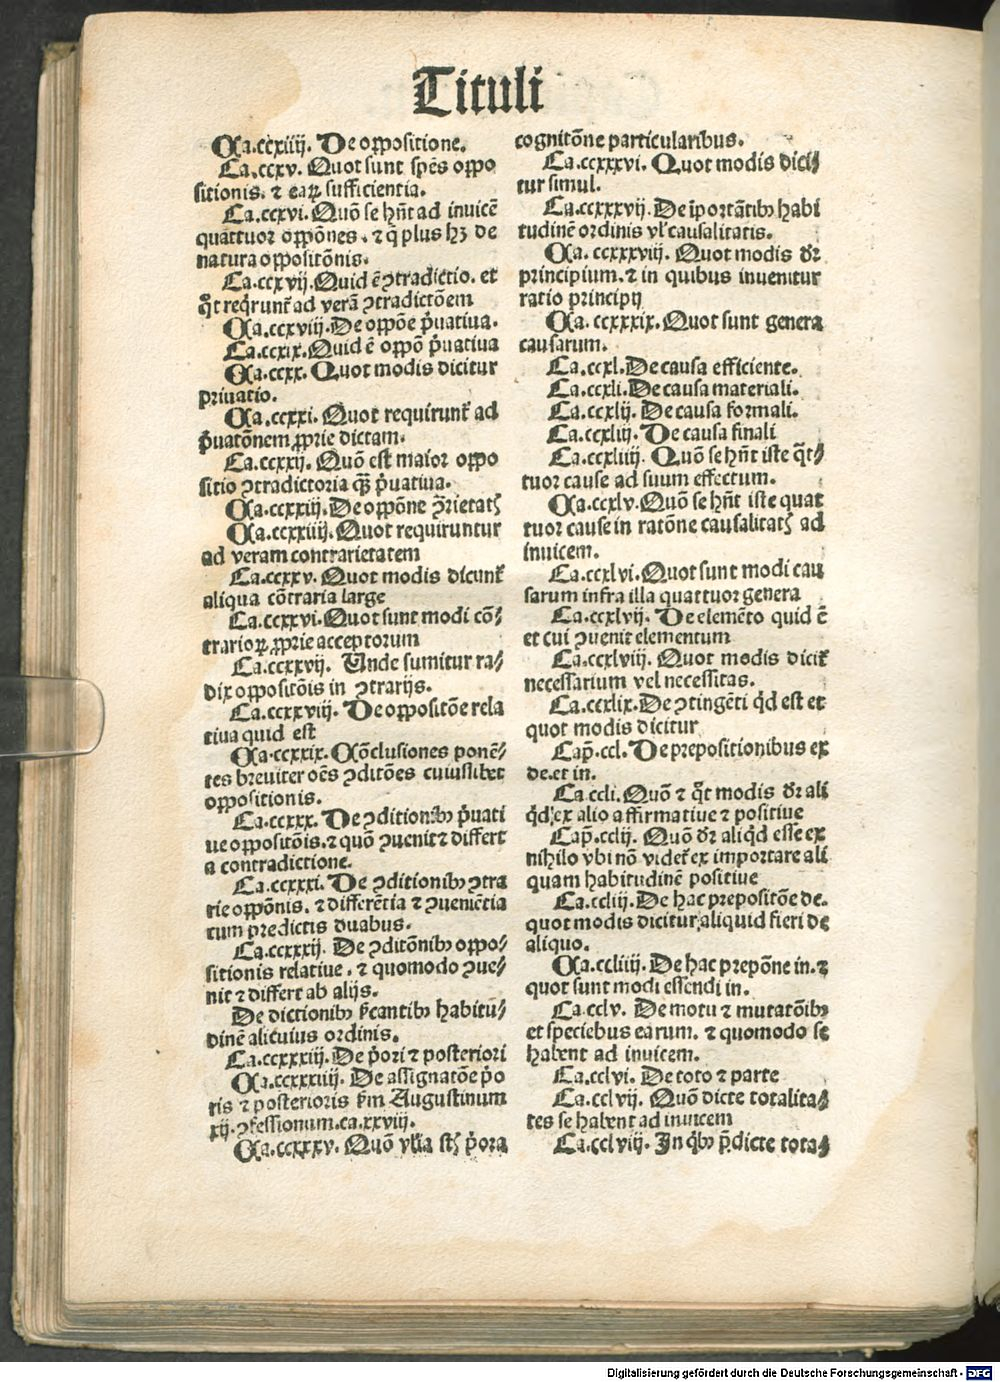 Tituli
Ca.ccxiiij. De oppositione.
Ca.ccxv. Quot sunt spēs oppo
sitionis. ⁊ earꝝ sufficientia.
Ca.ccxvi. Quō se hn̄t ad inuicē
quattuor oppōnes. ⁊ q̄ plus hꝫ de
natura oppositōnis.
Ca.ccxvij. Quid ē ꝯtradictio. et
qͦt reqͥrunt᷑ ad verā ꝯtradictōem
Ca.ccxviij. De oppōe pͥuatiua.
Ca.ccxix. Quid ē oppō pͥuatiua
Ca.ccxx. Quot modis dicitur
priuatio.
Ca.ccxxi. Quot requirunt᷑ ad
pͥuatōnem ꝓprie dictam.
Ca.ccxxij. Quō est maior oppo
sitio ꝯtradictoria qͣꝫ pͥuatiua.
Ca.ccxxiij. De oppōne ꝯ̄rietatꝭ
Ca.ccxxiiij. Quot requiruntur
ad veram contrarietatem
Ca.ccxxv. Quot modis dicunt᷑
aliqua cōtraria large
Ca.ccxxvi. Quot sunt modi cō⸗
trarioꝝ ꝓprie acceptorum
Ca.ccxxvij. Unde sumitur ra⸗
dix oppositōis in ꝯtrarijs.
Ca.ccxxviij. De oppositōe rela
tiua quid est
Ca.ccxxix. Cōclusiones ponē⸗
tes breuiter oēs ꝯditōes cuiuslibet
oppositionis.
Ca.ccxxx. De ꝯditionibꝫ pͥuati
ue oppositōis. ⁊ quō ꝯuenit ⁊ differt
a contradictione.
Ca.ccxxxi. De ꝯditionibꝫ ꝯtra
rie oppōnis. ⁊ differētia ⁊ ꝯueniētia
cum predictis duabus.
Ca.ccxxxij. De ꝯditōnibꝫ oppo⸗
sitionis relatiue. ⁊ quomodo ꝯue⸗
nit ⁊ differt ab alijs.
De dictionibꝫ sͥcantibꝫ habitu⸗
dinē alicuius ordinis.
Ca.ccxxxiij. De pͥori ⁊ posteriori
Ca.ccxxxiiij. De assignatōe pͥo
ris ⁊ posterioris ẜm Augustinum
xij. ꝯfessionum. ca. xxviij.
Ca.ccxxxv. Quō vl̄ia sꝭt pͥora
cognitōne particularibus.
Ca.ccxxxvi. Quot modis dici⸗
tur simul.
Ca.ccxxxvij. De īportātibꝫ habi
tudinē ordinis vl̓ causalitatis.
Ca.ccxxxviij. Quot modis dr̄
principium. ⁊ in quibus inuenitur
ratio principij
Ca. ccxxxix. Quot sunt genera
causarum.
Ca.ccxl. De causa efficiente.
Ca.ccxli. De causa materiali.
Ca.ccxlij. De causa formali.
Ca.ccxliij. De causa finali
Ca.ccxliiij. Quō se hn̄t iste qͣt⸗
tuor cause ad suum effectum.
Ca.ccxlv. Quō se hn̄t iste quat
tuor cause in ratōne causalitatꝭ ad
inuicem.
Ca.ccxlvi. Quot sunt modi cau
sarum infra illa quattuor genera
Ca.ccxlvij. De elemēto quid ē
et cui ꝯuenit elementum
Ca.ccxlviij. Quot modis dicit᷑
necessarium vel necessitas.
Ca.ccxlix. De ꝯtingēti qͥd est et
quot modis dicitur
Cap̄.ccl. De prepositionibus ex
de. et in.
Ca ccli. Quō ⁊ qͦt modis dr̄ ali
qͥd ex alio affirmatiue ⁊ positiue
Cap̄.cclij. Quō dr̄ aliqͥd esse ex
nihilo vbi nō videt᷑ ex importare ali
quam habitudinē positiue
Ca.ccliij. De hac prepositōe de.
quot modis dicitur aliquid fieri de
aliquo.
Ca.ccliiij. De hac prepōne in. ⁊
quot sunt modi essendi in.
Ca.cclv. De motu ⁊ mutatōibꝫ
et speciebus earum. ⁊ quomodo se
habent ad inuicem.
Ca.cclvi. De toto ⁊ parte
Ca.cclvij. Quō dicte totalita⸗
tes se habent ad inuicem
Ca.cclviij. In qͥbꝫ p̄dicte tota⸗
Digitalisierung gefördert durch die Deutsche Forschungsgemeinschaft - DFG